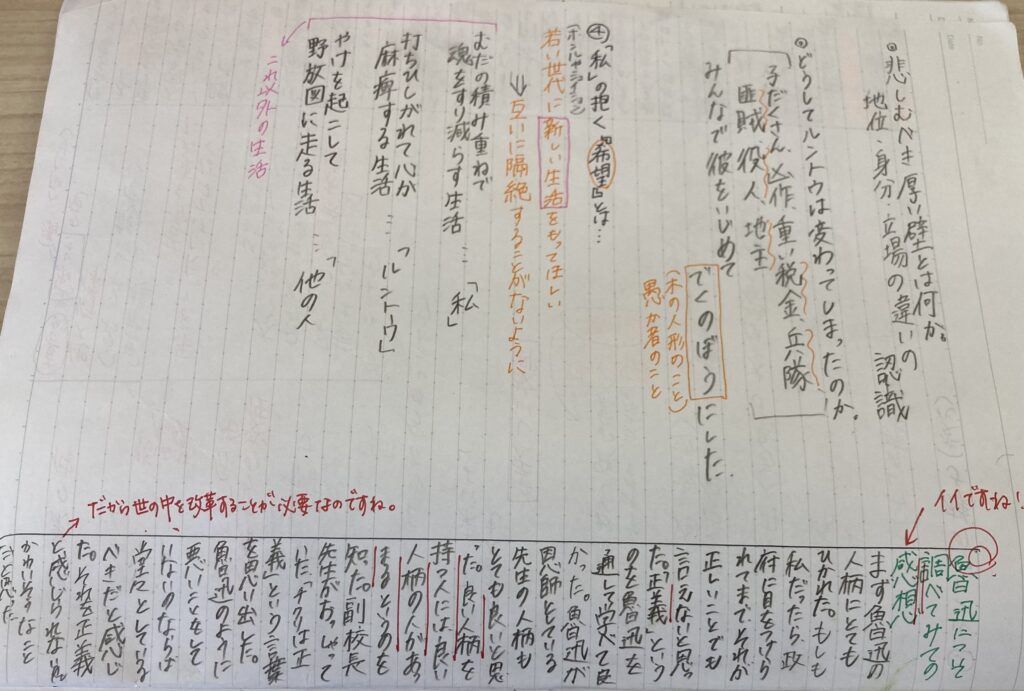 ◎悲しむべき厚い壁とは何か。
地位・身分・立場の違いの認識
◎どうしてルントウは変わってしまったのか。
子だくさん、凶作、重い税金、兵隊
匪賊、役人、地主
みんなで彼をいじめて
でくのぼうにした。
(木の人形のこと)
愚か者のこと
④「私」の抱く「希望」とは…
若い世代に新しい生活をもってほしい
⇒互いに隔絶することがないように
むだの積み重ねで
魂をすり減らす生活…「私」
打ちひしがれて心が
麻痺する生活…「ルントウ」
やけを起こして
野放図に走る生活…「他の人
これ以外の生活
イイですね!
魯迅について
調べてみての
感想
まず魯迅の
人柄にとても
ひかれた。もしも
私だったら、政
府に目をつけら
れてまで、それが
正しいことでも
言えないと思っ
た。「正義」という
のを魯迅を
通して学べて良
かった。魯迅が
恩師としている
先生の人柄も
とても良いと思
った。良い人柄を
持つ人には、良い
人柄の人があ
まるというのを
知った。副校長
先生がおっしゃって
いた「チクリは正
義」という言葉
を思い出した。
魯迅のように
悪いことをして
いないのならば
堂々としている
べきだと感じ
た。それを正義
と感じられない
かわいそうなこと
だと思った。
だから世の中を改革することが必要なのですね。